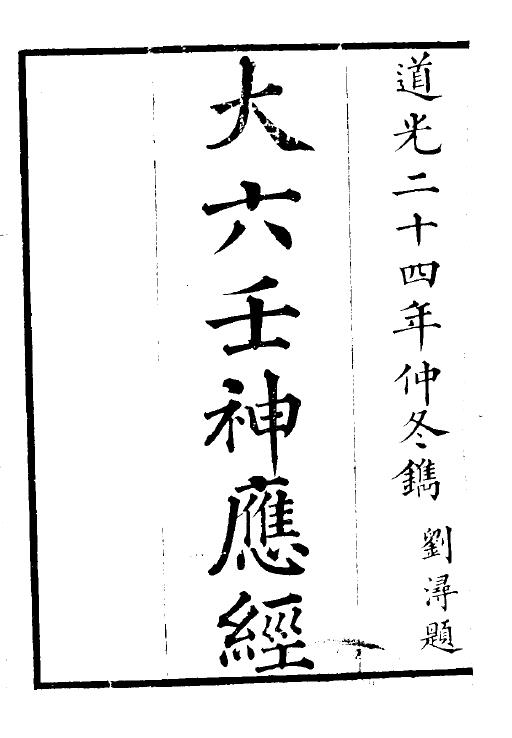 道光二十四年仲冬鐫
劉潯題
大六壬神應經